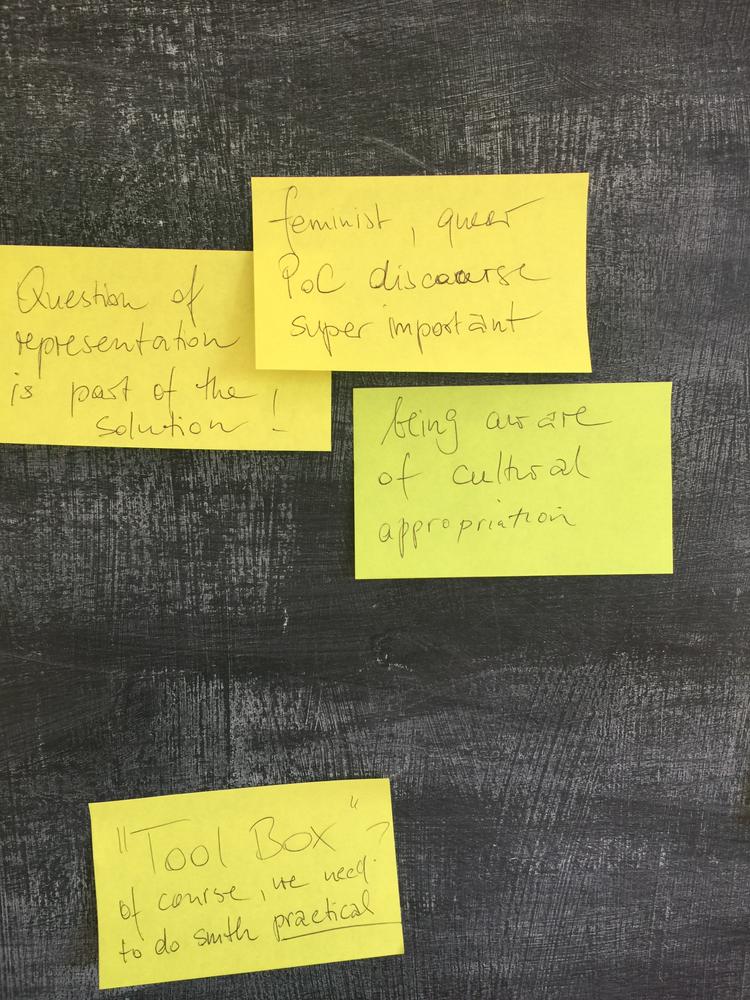 feminist, queer
PoC discourse
super important
Question of
representation
is part of the
solution!
being aware
of cultural
appropriation
"Tool Box"?
of course, we need
to do smth practical